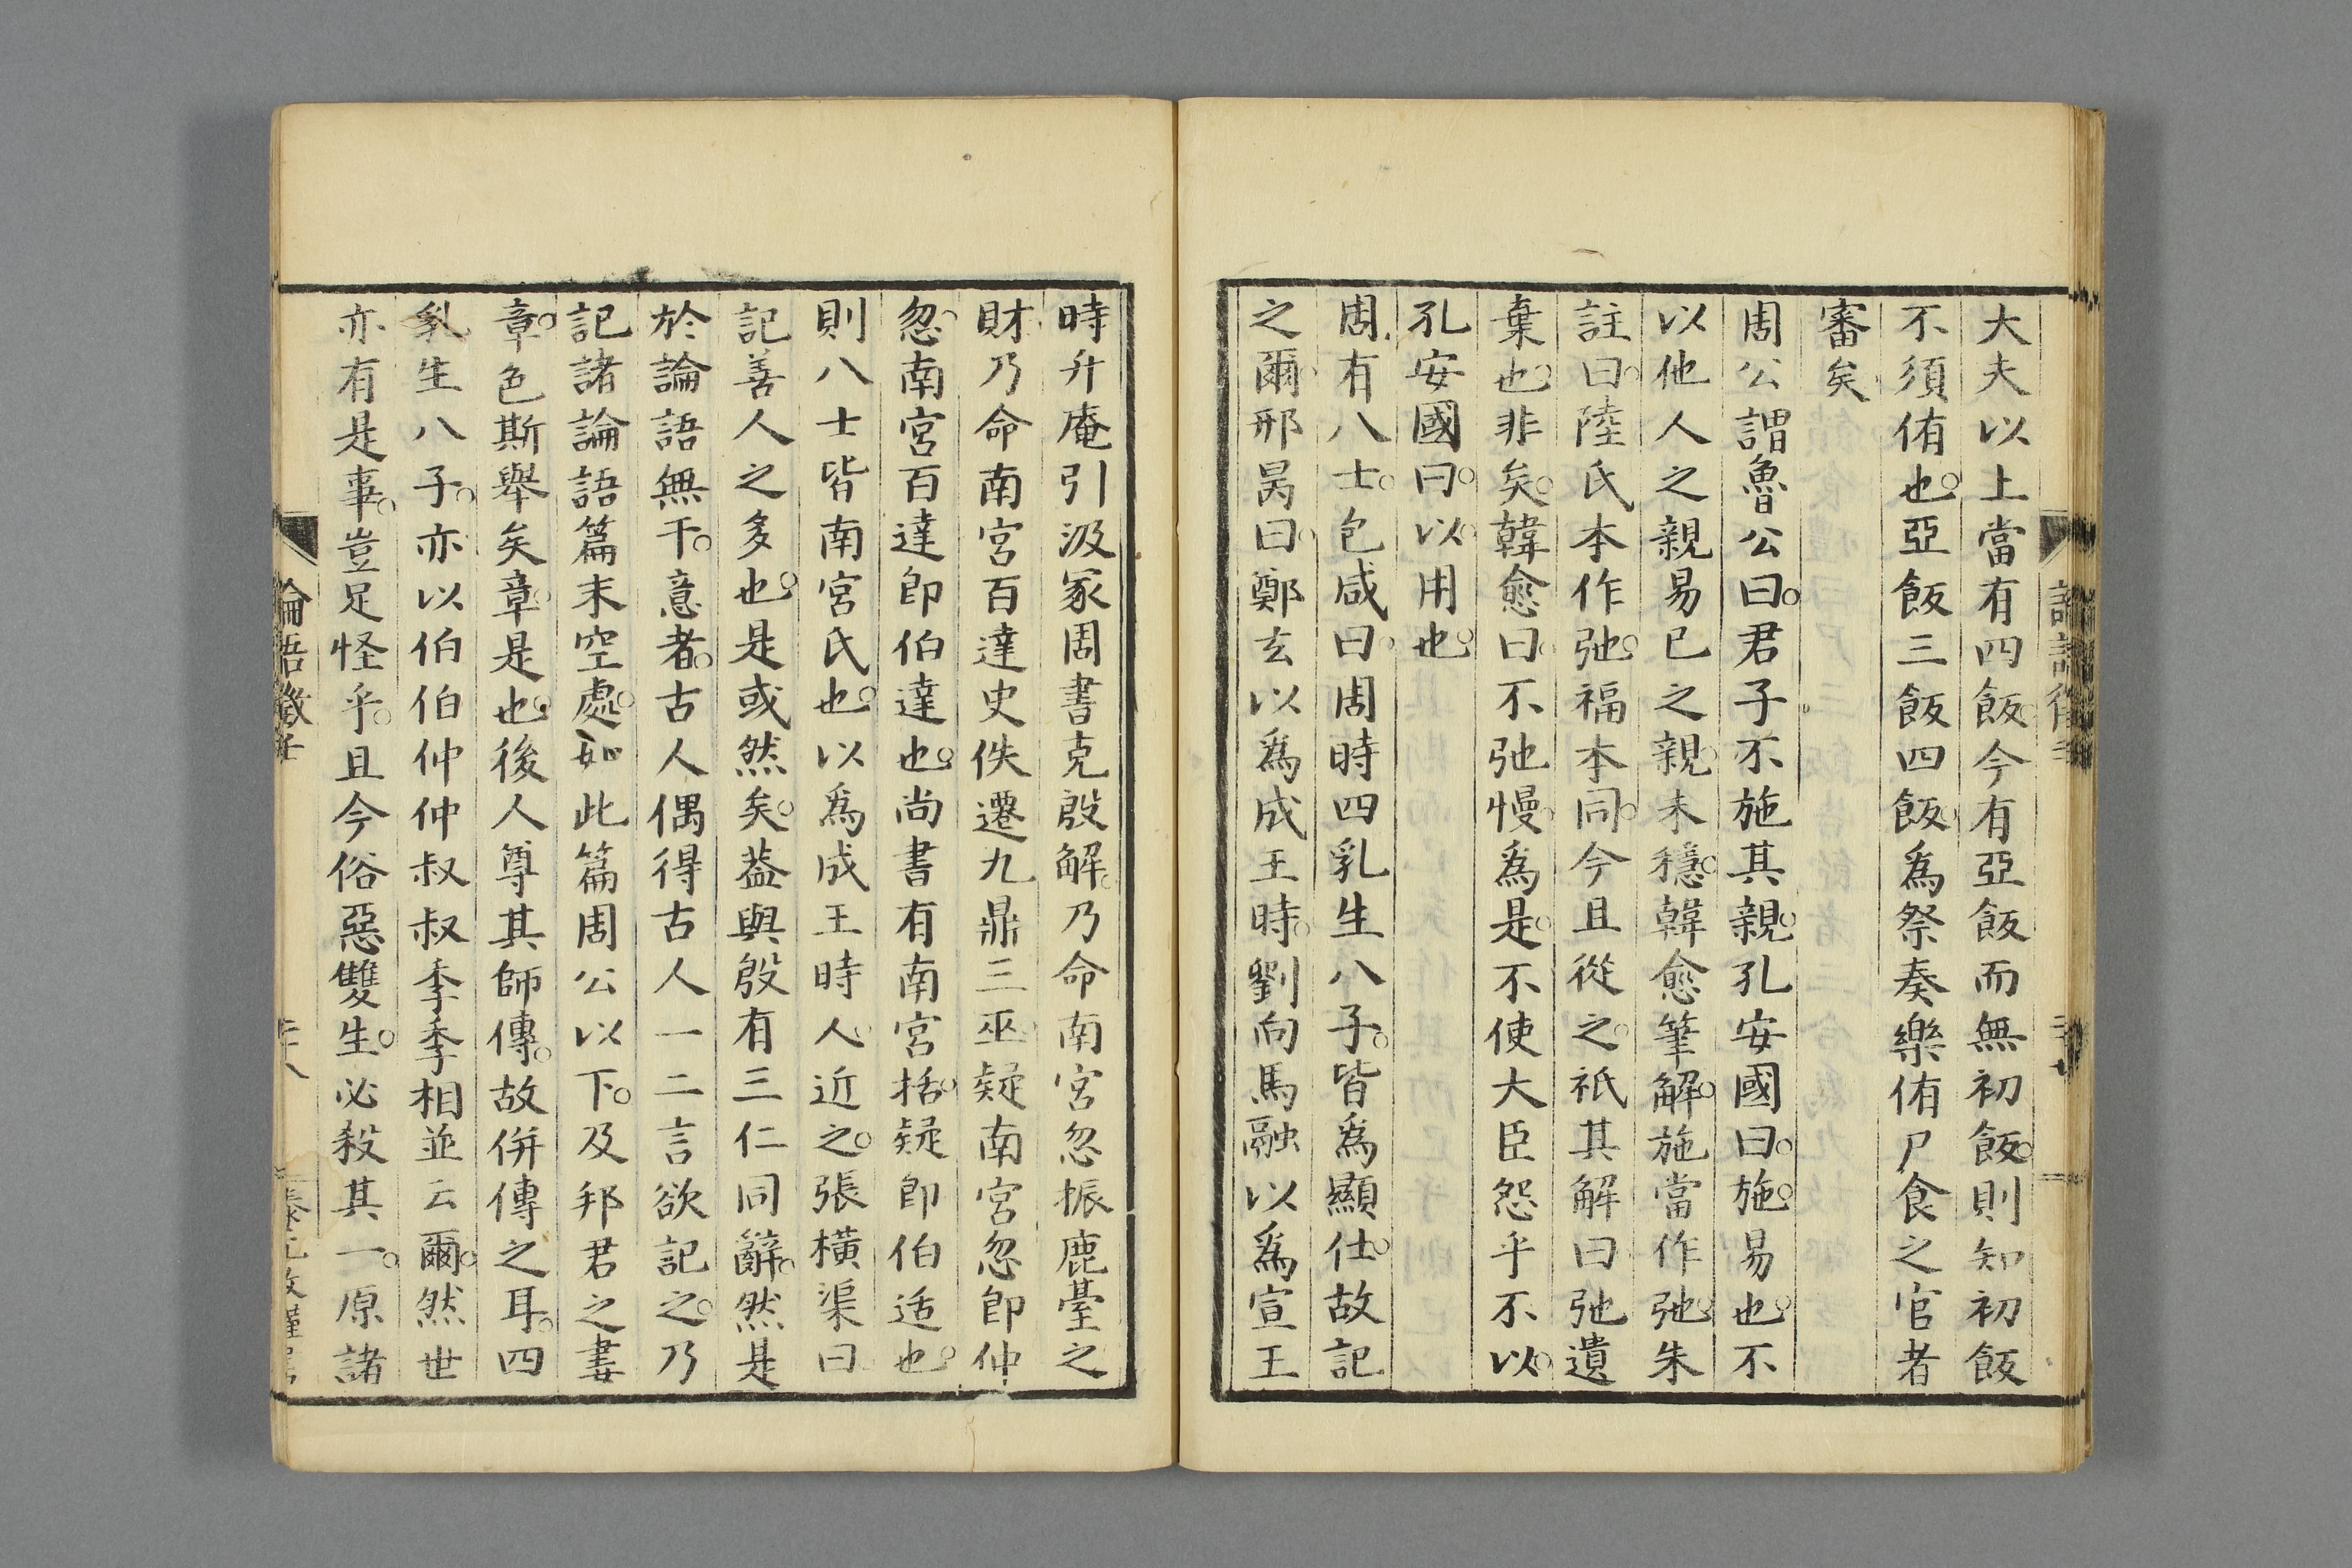 大夫以上當有四飯今有亞飯而無初飯則知初飯
不須侑也亞飯三飯四飯爲祭奏樂侑尸食之官者
審矣
周公謂魯公曰君子不施其親孔安國曰施易也不
以他人之親易已之親未穩韓愈筆解施當作弛朱
註曰陸氏本作弛福本同今且從之祇其解曰弛遺
棄也非矣韓愈曰不弛慢爲是不使大臣怨乎不以
孔安國曰以用也
周有八士包咸曰周時四乳生八子皆爲顯仕故記
之爾邢昺曰鄭玄以爲成王時劉向馬融以爲宣王
時升庵引汲冢周書克殷解乃命南宮忽振鹿臺之
財乃命南宮百達史佚遷九鼎三巫疑南宮忽即仲
忽南宮百達即伯達也尚書有南宮括疑即伯适也
則八士皆南宮氏也以爲成王時人近之張橫渠曰
記善人之多也是或然矣葢與殷有三仁同辭然是
於論語無干意者古人偶得古人一二言欲記之乃
記諸論語篇末空處如此篇周公以下及邦君之妻
章色斯舉矣章是也後人尊其師傳故併傳之耳四
乳生八子亦以伯伯仲仲叔叔季季相並云爾然世
亦有是事豈足怪乎且今俗惡雙生必殺其一原諸
論語徵